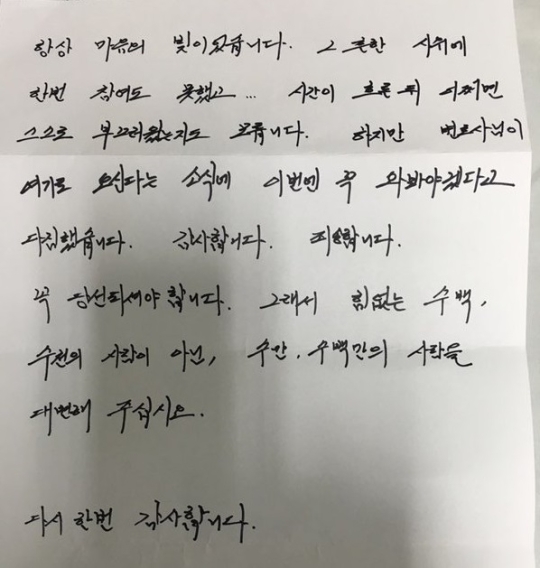 항상 마음의 빚이 있습니다. 그 흔한 시위에
한번 참여도 못했고... 시간이 흐른 뒤 어쩌면
스스로 부끄러웠는지도 모릅니다. 하지만 변호사님이
여기로 오신다는 소식에 이번엔 꼭 와봐야겠다고
다짐했습니다. 감사합니다. 죄송합니다.
꼭 당선되셔야 합니다. 그래서 힘없는 수백,
수천의 사람이 아닌, 수만, 수백만의 사람을
대변해 주십시오.
다시 한번 감사합니다.